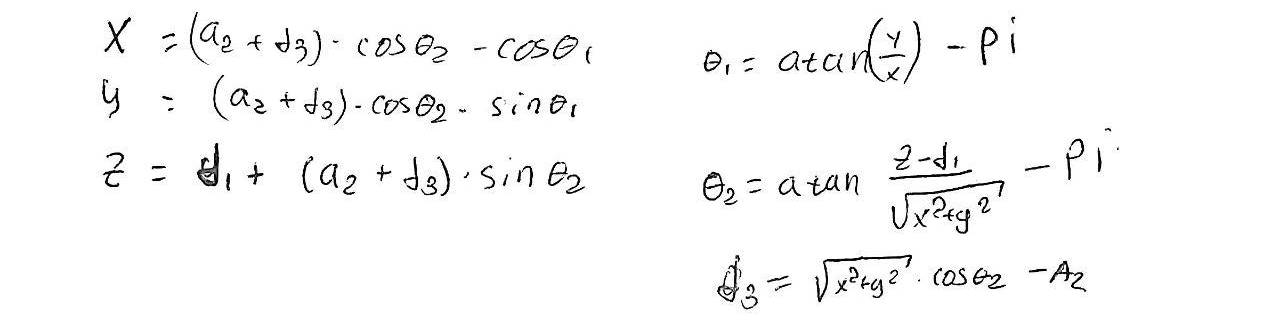 X = (a₂ + d₃) · cosθ₂ - cosθ₁
y = (a₂ + d₃) · cosθ₂ · sinθ₁
Z = d₁ + (a₂ + d₃) · sinθ₂
θ₁ = atan(y/x) - Pi
θ₂ = atan (z-d₁)/√(x²+y²) - Pi
d₃ = √(x²+y²) · cosθ₂ - A₂